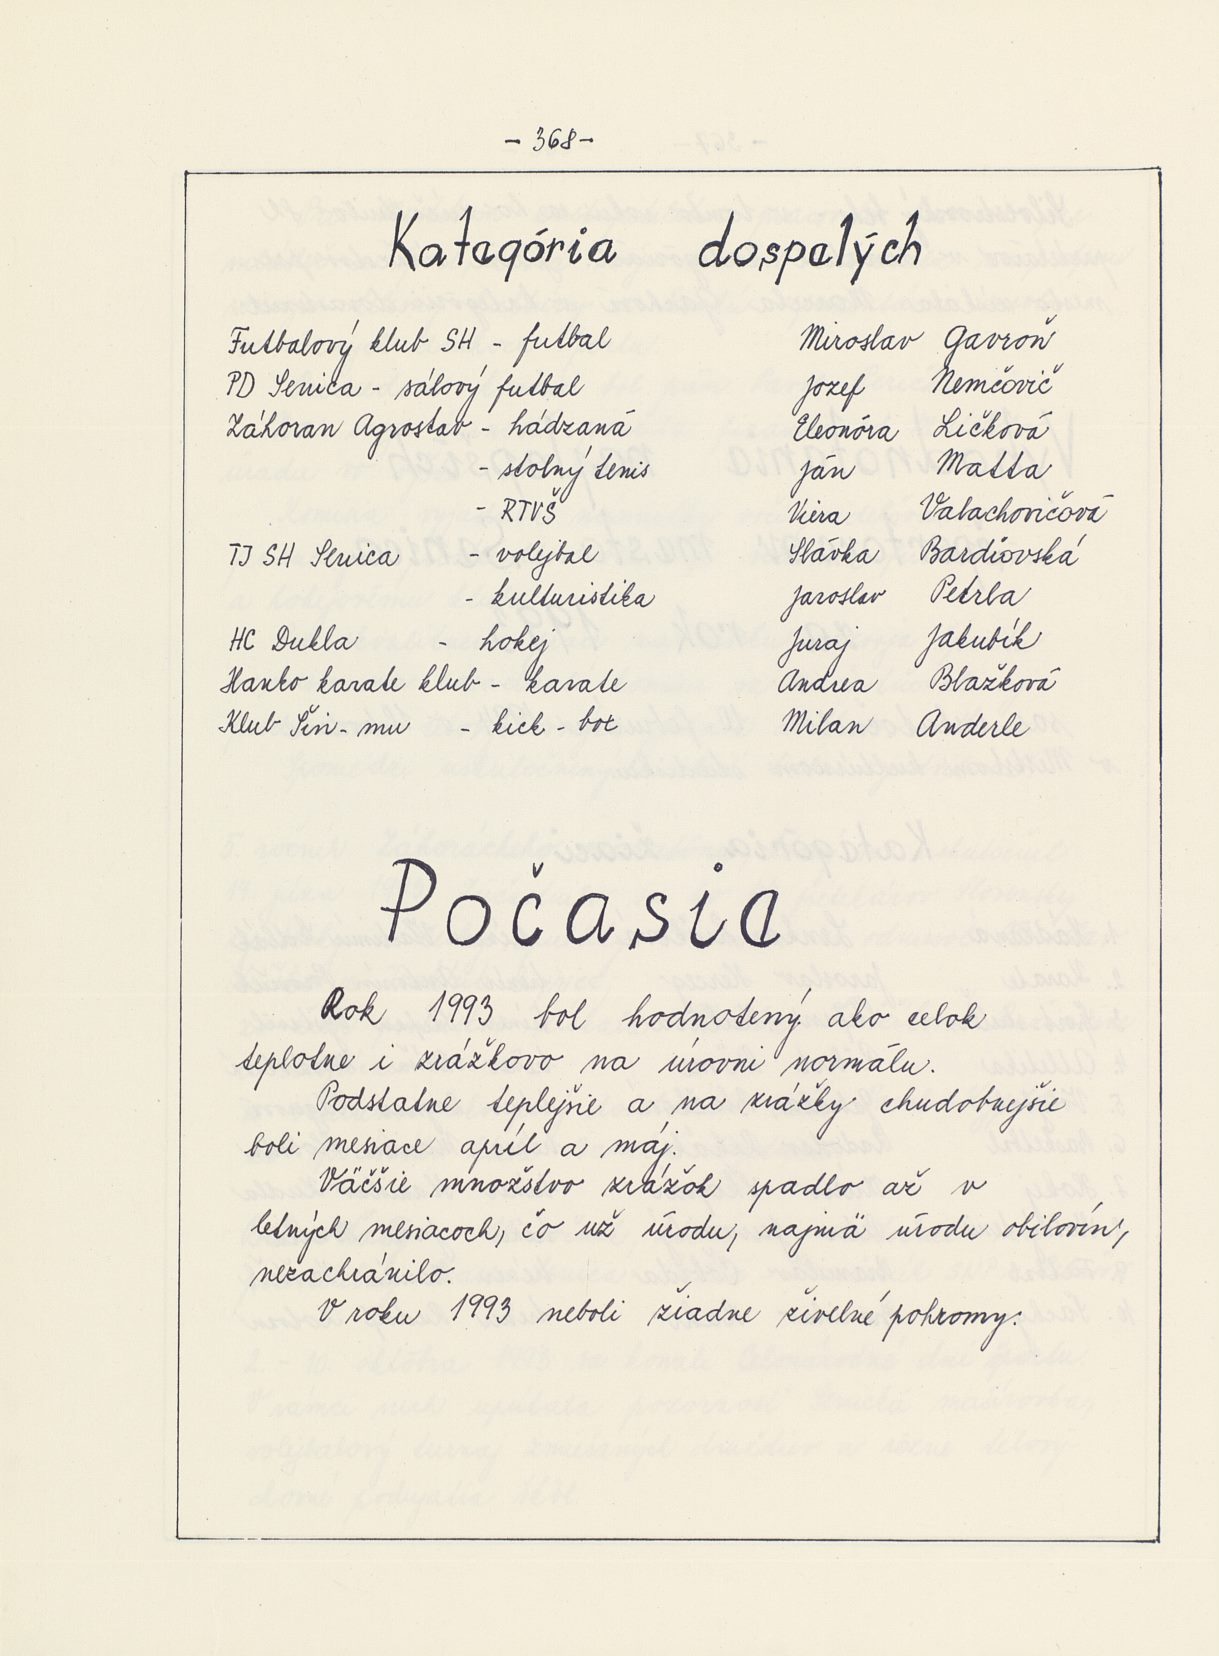 - 368 -
Kategória dospelých
Futbalový klub SH - futbal Miroslav Gavroň
PD Senica - sálový futbal Jozef Nemčovič
Záhoran Agrostav - hádzaná Eleonóra Ličková
- stolný tenis Ján Matta
- RTVŠ Viera Valachovičová
TJ SH Senica - volejbal Slávka Bardiovská
- kulturistika Jaroslav Petrla
HC Dukla - hokej Juraj Jakubík
Hanko karate klub - karate Andrea Blažková
Klub Šin-mu - kick-box Milan Anderle
Počasie
Rok 1993 bol hodnotený ako celok
teplotne i zrážkovo na úrovni normálu.
Podstatne teplejšie a na zrážky chudobnejšie
boli mesiace apríl a máj.
Väčšie množstvo zrážok spadlo až v
letných mesiacoch, čo už úrodu, najmä úrodu obilovín,
nezachránilo.
V roku 1993 neboli žiadne živelné pohromy.